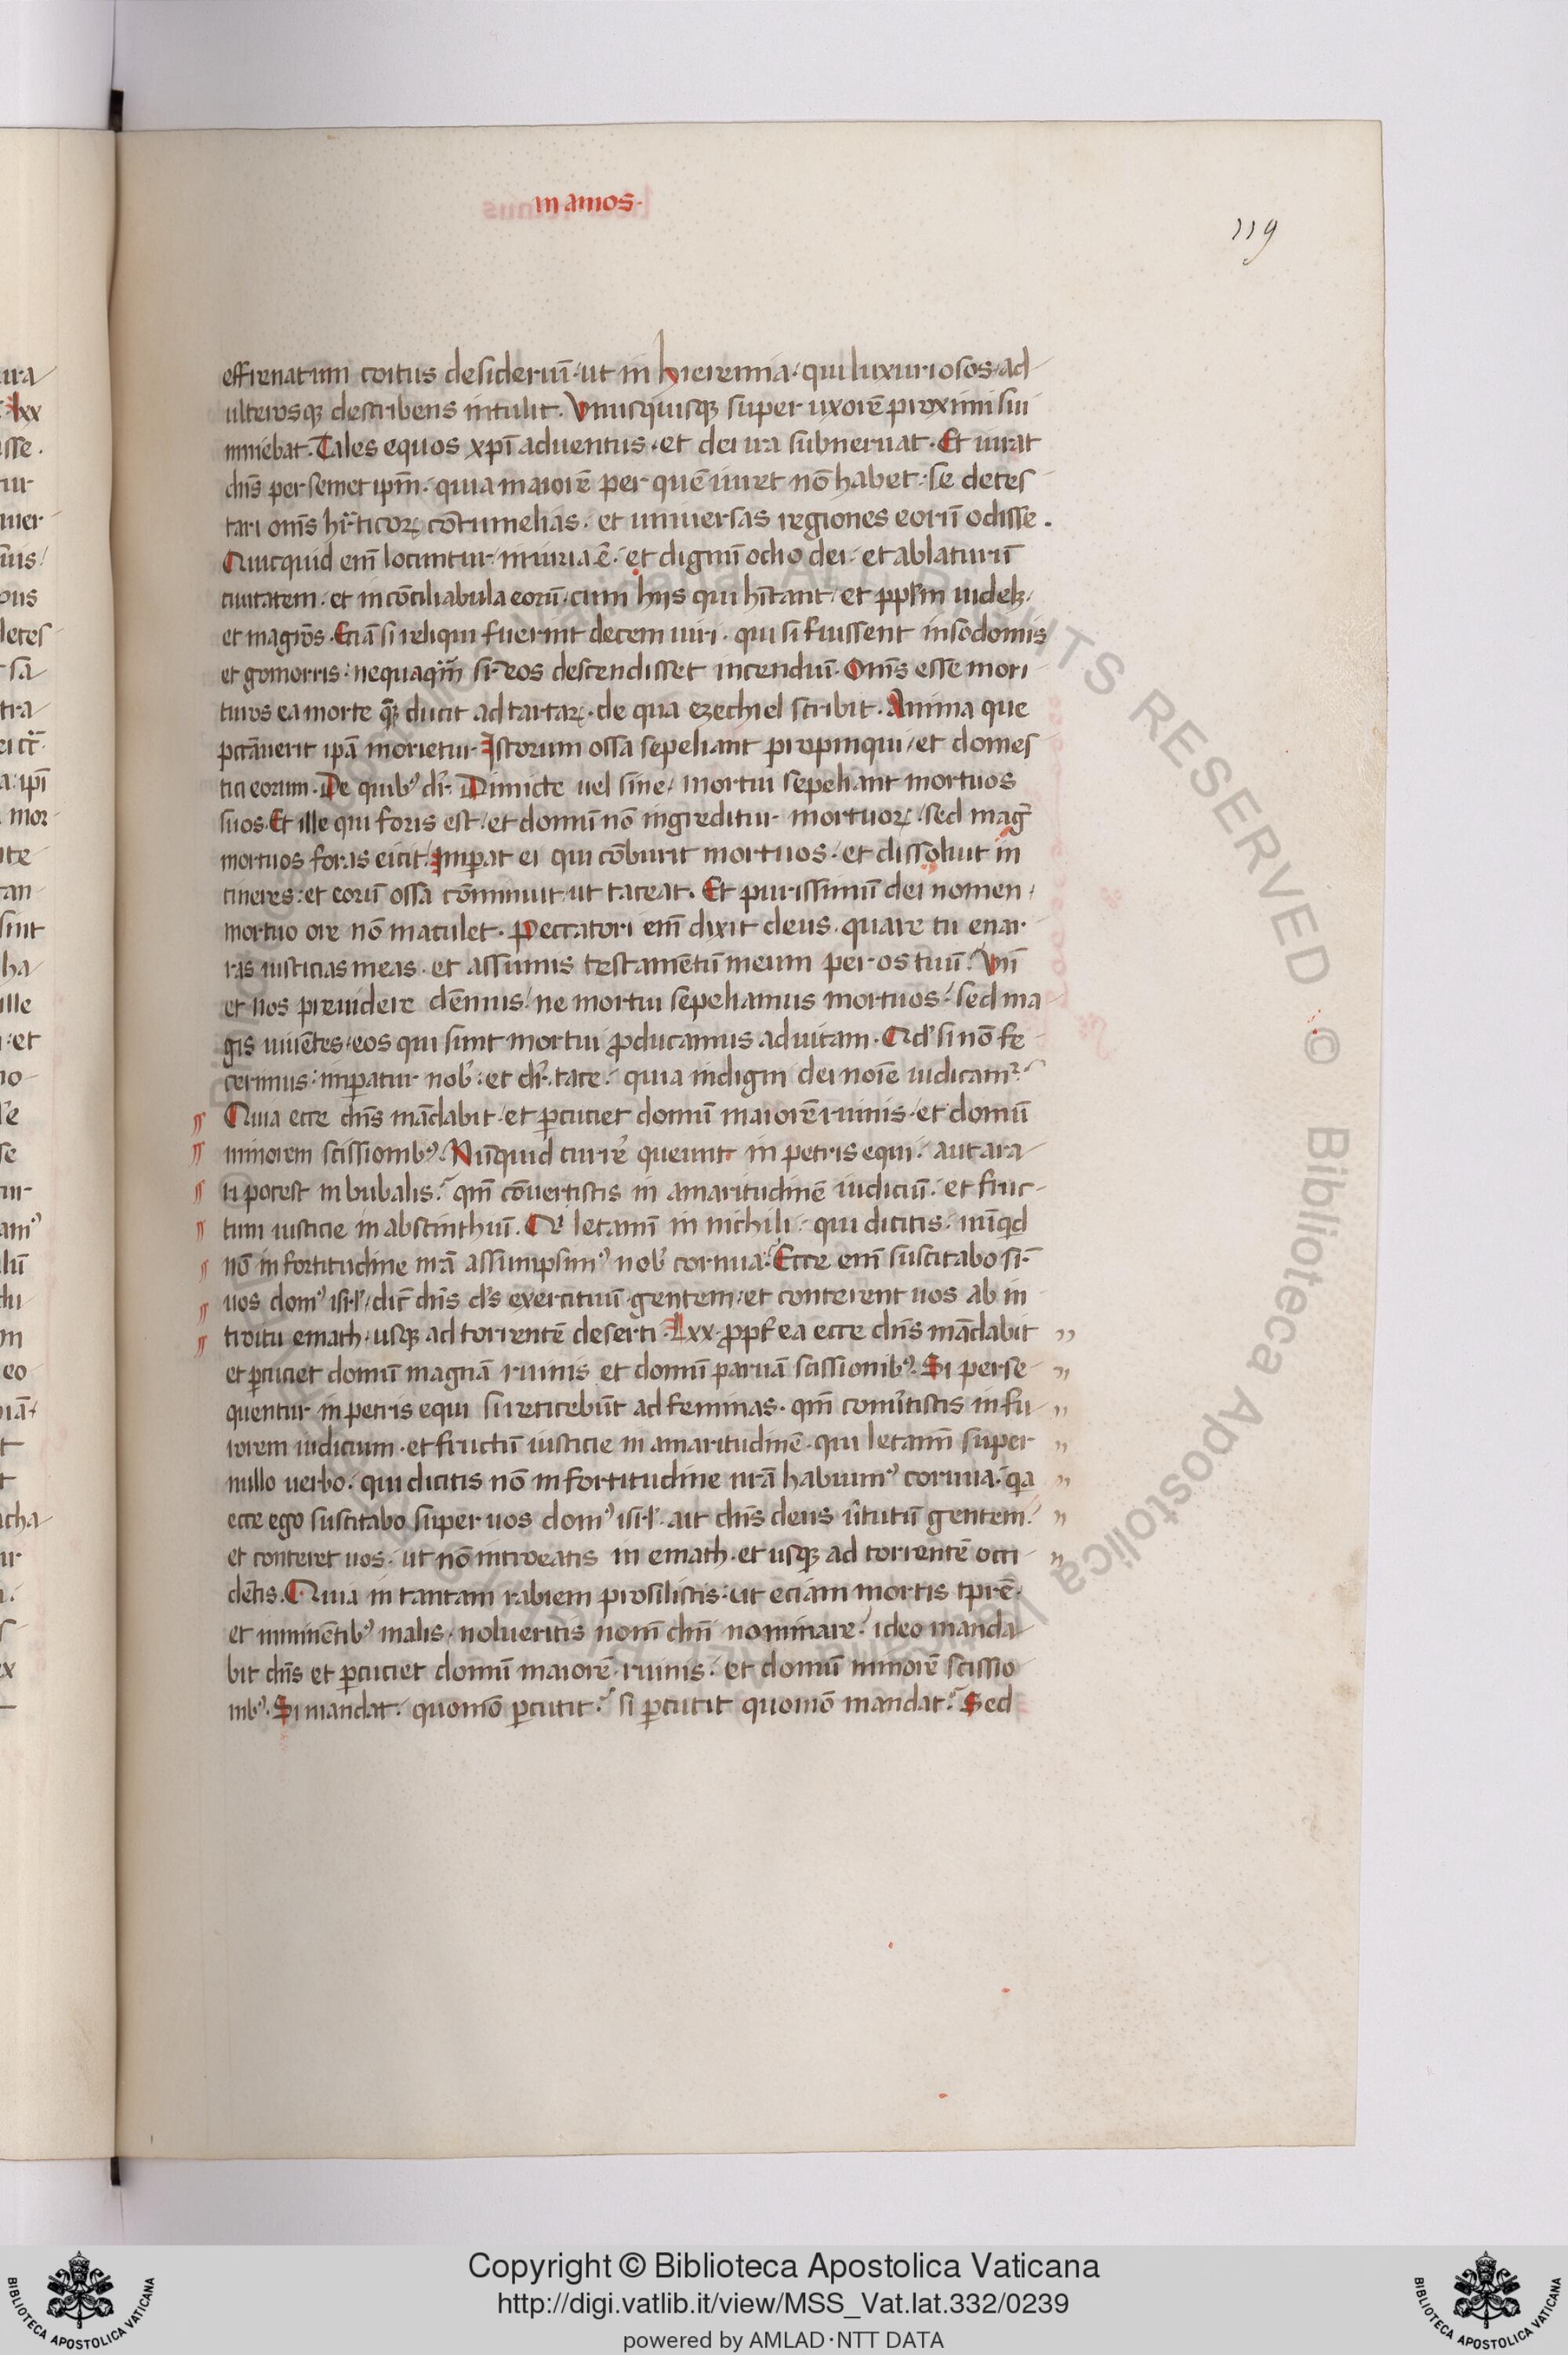 in amos.
119
effrenatum coitus desideriū. ut in hieremia. qui luxuriosos. ad
ulterosqꝫ describens intulit. Vnusquisqꝫ super uxorē proximi sui
inniebat. Tales equos xpī aduentus. et dei ira subneruat. Et iurat
dn̄s per semet ipm̄. quia maiorē per quē iuret nō habet. se detes
tari omīs hr̄ticoꝝ cōtumelias. et uniuersas regiones eorū odisse.
Quicquid eni᷑ locuntur. iniuria ē. et dignū odio dei. et ablaturū
ciuitatem. et in cōciliabula eorū. cum hijs qui hītant. et ppl̄m uidelꝫ.
et magrōs. Eciā si reliqui fuerint decem uiri. qui si fuissent in sodomis
et gomorris. nequaqᷓm sr̄ eos descendisset incendiū. Omīs esse mori
turos ea morte que ducit ad tartaꝝ. de qua ezechiel scribit. Anima que
pctāuerit ipā morietur. Istorum ossa sepeliant propinqui. et domes
tici eorum. De quibꝰ dr̄. Dimicte uel sine. mortui sepeliant mortuos
suos. Et ille qui foris est. et domū nō ingreditur mortuoꝝ. sed mag̃
mortuos foras eicit. Imꝑat ei qui cōburit mortuos. et dissoluit in
cineres. et eorū ossa cōminuit. ut taceat. Et purissimū dei nomen.
mortuo ore nō maculet. Peccatori em̄ dixit deus. quare tu enar
ras iusticias meas. et assumis testamētū meum per os tuū. Vn̄
et nos preuidere dēmus. ne mortui sepeliamus mortuos. sed ma
gis uiuētes. eos qui sunt mortui ꝓducamus ad uitam. Qd̾ si nō fe
cerimus. imꝑatur nob̾. et dr̄. tace. quia indigni dei noīe iudicamr̾.
Quia ecce dn̄s mādabit. et ꝑcuciet domū maiorē ruinis. et domū
minorem scissionibꝰ. Nūquid currē queunt in petris equi. aut ara
ri potest in bubalis. qm̄ cōuertistis in amaritudinē iudiciū. et fruc
tum iusticie in abscinthiū. Q̾ letamī in nichili. qui dicitis. nūqͥd
nō in fortitudine nr̄ā assumpsimꝰ nob̾ cornua. Ecce em̄ suscitabo sr̄
uos domꝰ isrl̾. dic̄ dn̄s d̾s exercituū gentem. et conterent uos ab in
troitu emath. usqꝫ ad torrentē deserti. Lxx. ꝓpt̾ ea ecce dn̄s mādabit
et ꝑcuciet domū magnā ruinis et domū paruā scissionibꝰ. Si perse
quentur in petris equi si reticebūt ad feminas. qm̄ conu̾tistis in fu
rorem iudicium. et fructū iusticie in amaritudinē. qui letamī super
nullo uerbo. qui dicitis nō in fortitudine nr̄ā habuimꝰ cornua. qͣ
ecce ego suscitabo super uos domꝰ isrl̾. ait dn̄s deus u̾tutū gentem.
et conteret uos. ut nō introeatis in emath. et usqꝫ ad torrentē occi
dētis. Quia in tantam rabiem prosilistis. ut eciam mortis tprē.
et inminētibꝰ malis. nolueritis nom̄ dn̄i nominare. ideo manda
bit dn̄s et ꝑcuciet domū maiorē. ruinis. et domū minorē scissio
nibꝰ. Si mandat. quomō ꝑcutit. si ꝑcutit quomō mandat. Sed
Copyright © Biblioteca Apostolica Vaticana
http://digi.vatlib.it/view/MSS_Vat.lat.332/0239
powered by AMLAD·NTT DATA
BIBLIOTECA APOSTOLICA VATICANA
BIBLIOTECA APOSTOLICA VATICANA